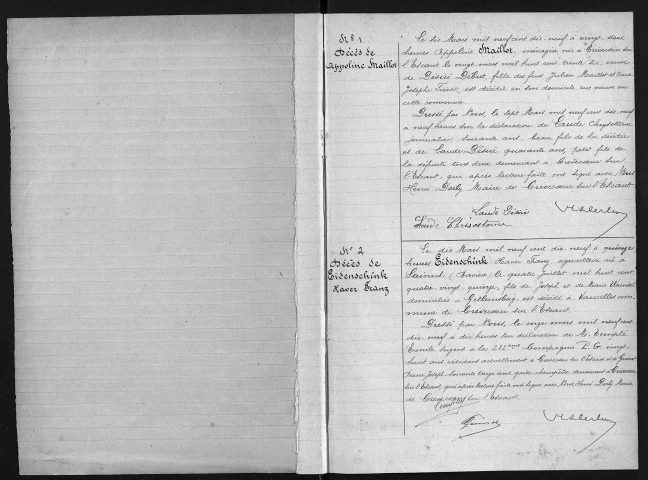 N° 1
Décès de
Appoline Maillot
Le dix Mars mil neuf cent dix-neuf à vingt deux
heures Appoline Maillot, ménagère née à Crèvecœur sur
l'Escaut le vingt mars mil huit cent trente six, veuve
de Désiré, fille des feux Julien Maillot et
Joseph, est décédée en son domicile, rue neuve en
cette commune.
Dressé par Nous, le Mars mil neuf cent dix-neuf
à neuf heures sur la déclaration de Laude Chrysostome
journalier, soixante ans, beau fils de la décédée
et de Laude Désiré quarante ans, petit fils de
la défunte tous deux demeurant à Crèvecœur sur
l'Escaut, qui après lecture faite ont signé avec Nous
Henri Maire de Crèvecœur sur l'Escaut
Laude Désiré
Laude Chrisostome
N° 2
Décès de
Eidenschink
Xaver Franz
Le dix Mars mil neuf cent dix-neuf à quinze
heures Eidenschink Xaver Franz, né à
(Bavière) le quatre juillet mil huit cent
quatre-vingt-quinze, fils de Joseph et de Maria
domiciliés à est décédé à Vaucelles com-
mune de Crèvecœur sur l'Escaut.
Dressé par Nous, le onze mars mil neuf cent
dix-neuf à dix heures sur déclaration de M.
Emile Sergent à la 282ème Compagnie P.G. vingt
huit ans résidant actuellement à Crèvecœur sur l'Escaut et de
Joseph, soixante ans garde champêtre demeurant à Crèvecœur
sur l'Escaut, qui après lecture faite ont signé avec Nous Henri Maire
de Crèvecœur sur l'Escaut.